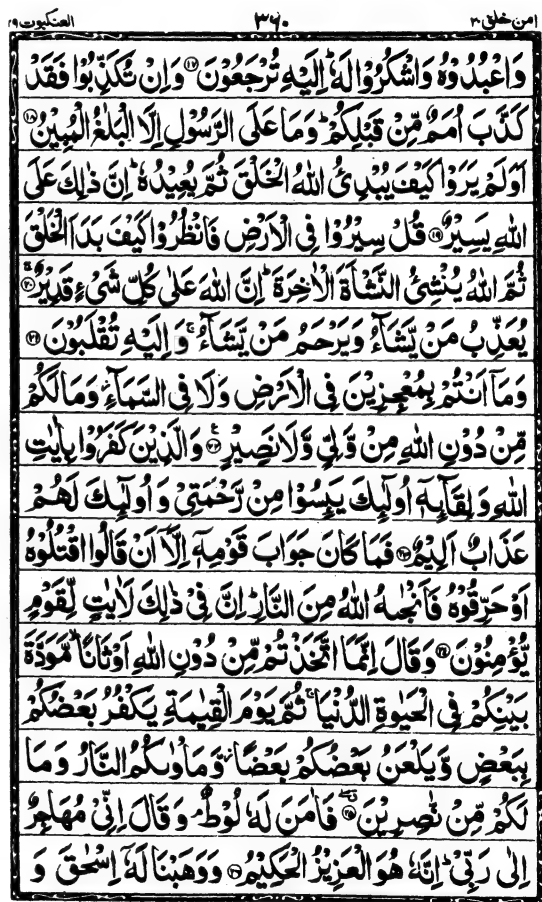 امن خلق ۲۰ ۳۶۰ العنکبوت ۲۹
وَاعْبُدُوْهُ وَاشْكُرُوْا لَهٗ ؕ اِلَيْهِ تُرْجَعُوْنَ ۝۱۷ وَاِنْ تُكَذِّبُوْا فَقَدْ
كَذَّبَ اُمَمٌ مِّنْ قَبْلِكُمْ ؕ وَمَا عَلَى الرَّسُوْلِ اِلَّا الْبَلٰغُ الْمُبِيْنُ ۝۱۸
اَوَلَمْ يَرَوْا كَيْفَ يُبْدِئُ اللّٰهُ الْخَلْقَ ثُمَّ يُعِيْدُهٗ ؕ اِنَّ ذٰلِكَ عَلَى
اللّٰهِ يَسِيْرٌ ۝۱۹ قُلْ سِيْرُوْا فِى الْاَرْضِ فَانْظُرُوْا كَيْفَ بَدَاَ الْخَلْقَ
ثُمَّ اللّٰهُ يُنْشِئُ النَّشْاَةَ الْاٰخِرَةَ ؕ اِنَّ اللّٰهَ عَلٰى كُلِّ شَىْءٍ قَدِيْرٌ ۝۲۰
يُعَذِّبُ مَنْ يَّشَآءُ وَيَرْحَمُ مَنْ يَّشَآءُ ۚ وَاِلَيْهِ تُقْلَبُوْنَ ۝۲۱
وَمَآ اَنْتُمْ بِمُعْجِزِيْنَ فِى الْاَرْضِ وَلَا فِى السَّمَآءِ ؗ وَمَا لَكُمْ
مِّنْ دُوْنِ اللّٰهِ مِنْ وَّلِىٍّ وَّلَا نَصِيْرٍ ۝۲۲ وَالَّذِيْنَ كَفَرُوْا بِاٰيٰتِ
اللّٰهِ وَلِقَآئِهٖٓ اُولٰٓئِكَ يَئِسُوْا مِنْ رَّحْمَتِىْ وَاُولٰٓئِكَ لَهُمْ
عَذَابٌ اَلِيْمٌ ۝۲۳ فَمَا كَانَ جَوَابَ قَوْمِهٖٓ اِلَّآ اَنْ قَالُوا اقْتُلُوْهُ
اَوْ حَرِّقُوْهُ فَاَنْجٰىهُ اللّٰهُ مِنَ النَّارِ ؕ اِنَّ فِىْ ذٰلِكَ لَاٰيٰتٍ لِّقَوْمٍ
يُّؤْمِنُوْنَ ۝۲۴ وَقَالَ اِنَّمَا اتَّخَذْتُمْ مِّنْ دُوْنِ اللّٰهِ اَوْثَانًا ۙ مَّوَدَّةَ
بَيْنِكُمْ فِى الْحَيٰوةِ الدُّنْيَا ۚ ثُمَّ يَوْمَ الْقِيٰمَةِ يَكْفُرُ بَعْضُكُمْ
بِبَعْضٍ وَّيَلْعَنُ بَعْضُكُمْ بَعْضًا ؗ وَّمَاْوٰىكُمُ النَّارُ وَمَا
لَكُمْ مِّنْ نّٰصِرِيْنَ ۝۲۵ فَاٰمَنَ لَهٗ لُوْطٌ ۘ وَقَالَ اِنِّىْ مُهَاجِرٌ
اِلٰى رَبِّىْ ؕ اِنَّهٗ هُوَ الْعَزِيْزُ الْحَكِيْمُ ۝۲۶ وَوَهَبْنَا لَهٗٓ اِسْحٰقَ وَ